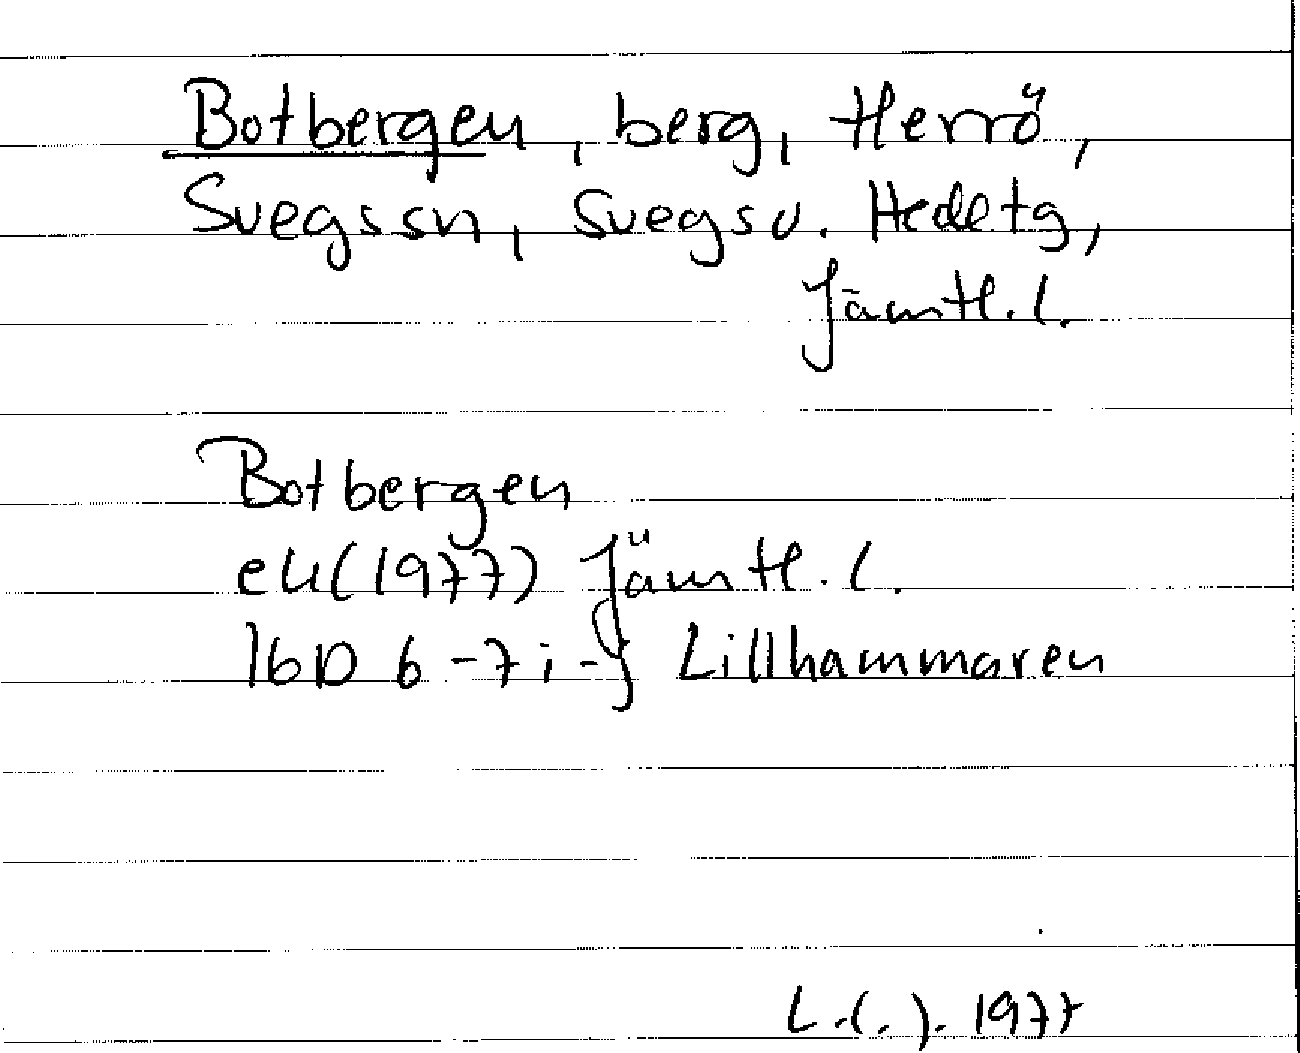 Botbergen, berg, Herrö,
Svegssn, Svegsv. Hedetg,
Jämtl. l.
Botbergen
ek (1977) Jämtl. l.
16D 6-7 i-j Lillhammaren
1977